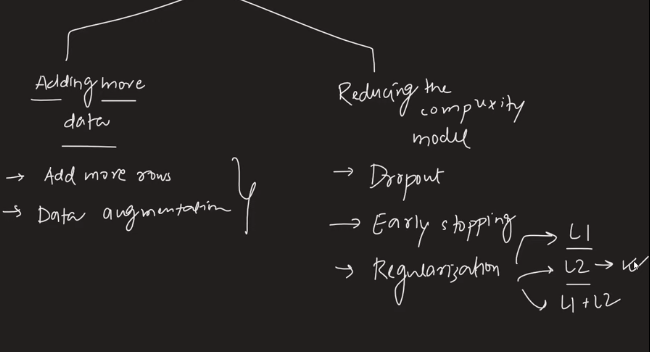 Adding more
data
→ Add more rows
→ Data augmentation
Reducing the
compuxity
model
→ Dropout
→ Early stopping
→ Regularization
→ L1
→ L2 →
L1 + L2